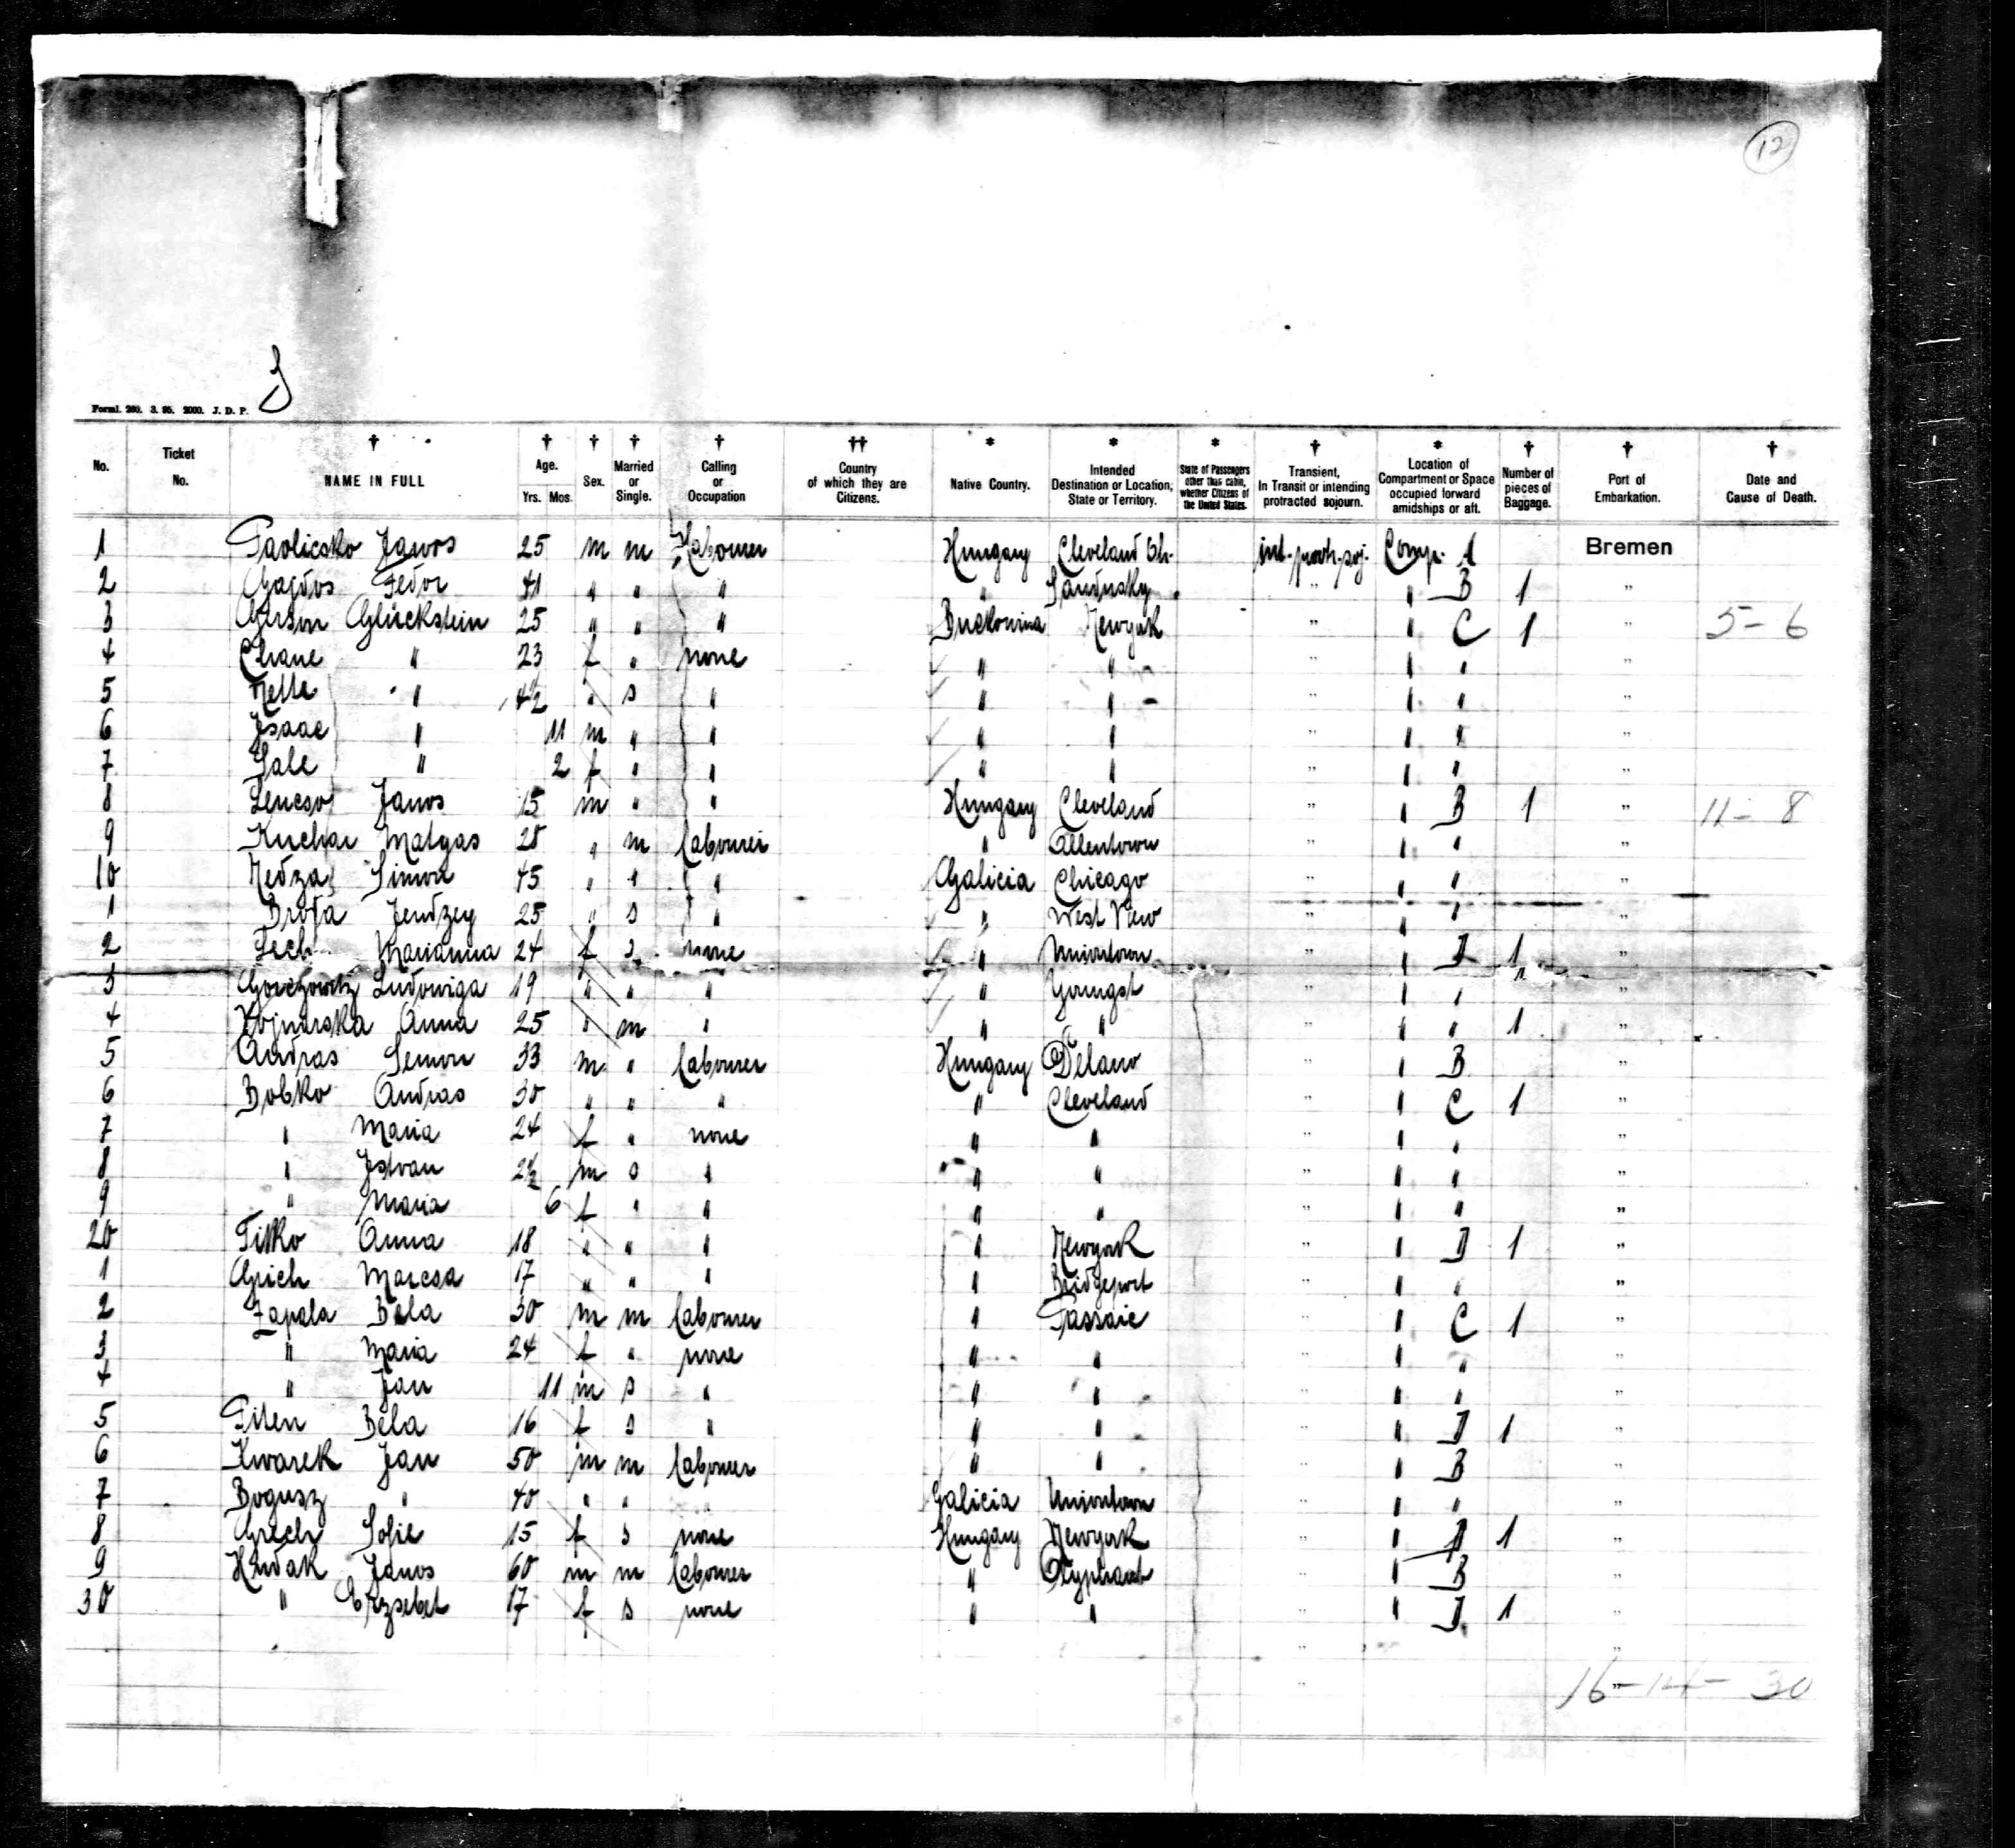 12
J
Forml. 260. 3. 95. 2000. J. D. P.
No. Ticket No. † NAME IN FULL † Age. Yrs. Mos. † Sex. † Married or Single. † Calling or Occupation †† Country of which they are Citizens. * Native Country. * Intended Destination or Location, State or Territory. * State of Passengers other than cabin, whether Citizens of the United States. † Transient, In Transit or intending protracted sojourn. * Location of Compartment or Space occupied forward amidships or aft. † Number of pieces of Baggage. † Port of Embarkation. † Date and Cause of Death.
1 Paolicsko Janos 25 m m Labourer Hungary Cleveland Oh. int. protr. soj. Comp. 1 Bremen
2 Gajdos Fedor 41 " " " " Sandusky " " B 1 "
3 Gerson Glückstein 25 " " " Buckowina Newyork " " C 1 " 5-6
4 Chane " 23 f " none " " " " " "
5 Nette " 4½ " s " " " " " " "
6 Isaac " 11 m " " " " " " " "
7 Sale " 2 f " " " " " " " "
8 Lencso Janos 15 m " " Hungary Cleveland " " B 1 " 11-8
9 Kuchar Matyas 28 " m labourer " Allentown " " " "
10 Nedza Simon 45 " " " Galicia Chicago " " " "
1 Brosa Jendzey 25 " s " " West View " " " "
2 Lech Marianna 24 f s none " Uniontown " " D 1 "
3 Gorczowitz Ludowiga 19 " " " " Youngst " " " " "
4 Wojnarska Anna 25 " m " " " " " " 1 "
5 Andras Semon 33 m " labourer Hungary Delano " B "
6 Bobko Andras 30 " " " " Cleveland " " C 1 "
7 " Maria 24 f " none " " " " " "
8 " Istvan 2½ m s " " " " " " "
9 " Maria 6 f " " " " " " " "
20 Titko Anna 18 " " " " Newyork " " D 1 "
1 Grich Marcsa 17 " " " " Bridgeport " " " "
2 Zapala Bela 30 m m labourer " Passaic " " C 1 "
3 " Maria 24 f " none " " " " " "
4 " Jan 11 m s " " " " " " "
5 Piten Bela 16 f s " " " " " D 1 "
6 Kwarek Jan 50 m m labourer " " " " B "
7 Bogusz " 40 " " " Galicia Uniontown " " " "
8 Grech Sofie 15 f s none Hungary Newyork " " D 1 "
9 Hudak Janos 60 m m labourer " Olyphant " " B "
30 " Erzsebet 17 f s none " " " " D 1 "
" "
" "
16-14-30